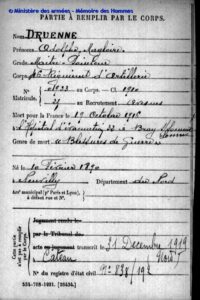 © Ministère des armées - Mémoire des Hommes
PARTIE À REMPLIR PAR LE CORPS.
Nom DRUENNE
Prénoms Adolphe, Magloire
Grade Maître Pointeur
Corps Régiment d'Artillerie
N° 1933 au Corps. — Cl. 1910
Matricule. au Recrutement Avesnes
Mort pour la France le 19 Octobre 1916
à l'Hôpital d'évacuation de Bray Somme
Genre de mort Blessures de Guerre
Né le 10 Février 1890
à Neuvilly Département du Nord
Arr¹ municipal (p' Paris et Lyon),
à défaut rue et N°.
Cette partie
n'est pas à remplir
par le Corps.
Jugement rendu le
par le Tribunal de
acte ou jugement transcrit le 31 Décembre 1919
à Cateau Nord
N° du registre d'état civil N° 838/192
534-708-1921. [26434.]